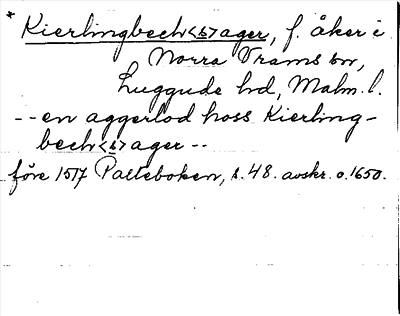 * Kierlingbech<s>ager, f. åker i
Norra Vrams sn,
Luggude hd, Malm. l.
-- en aggerlod hoss Kierling-
bech<s>ager --
före 1517 Palteboken, s. 48. avskr. o. 1650.